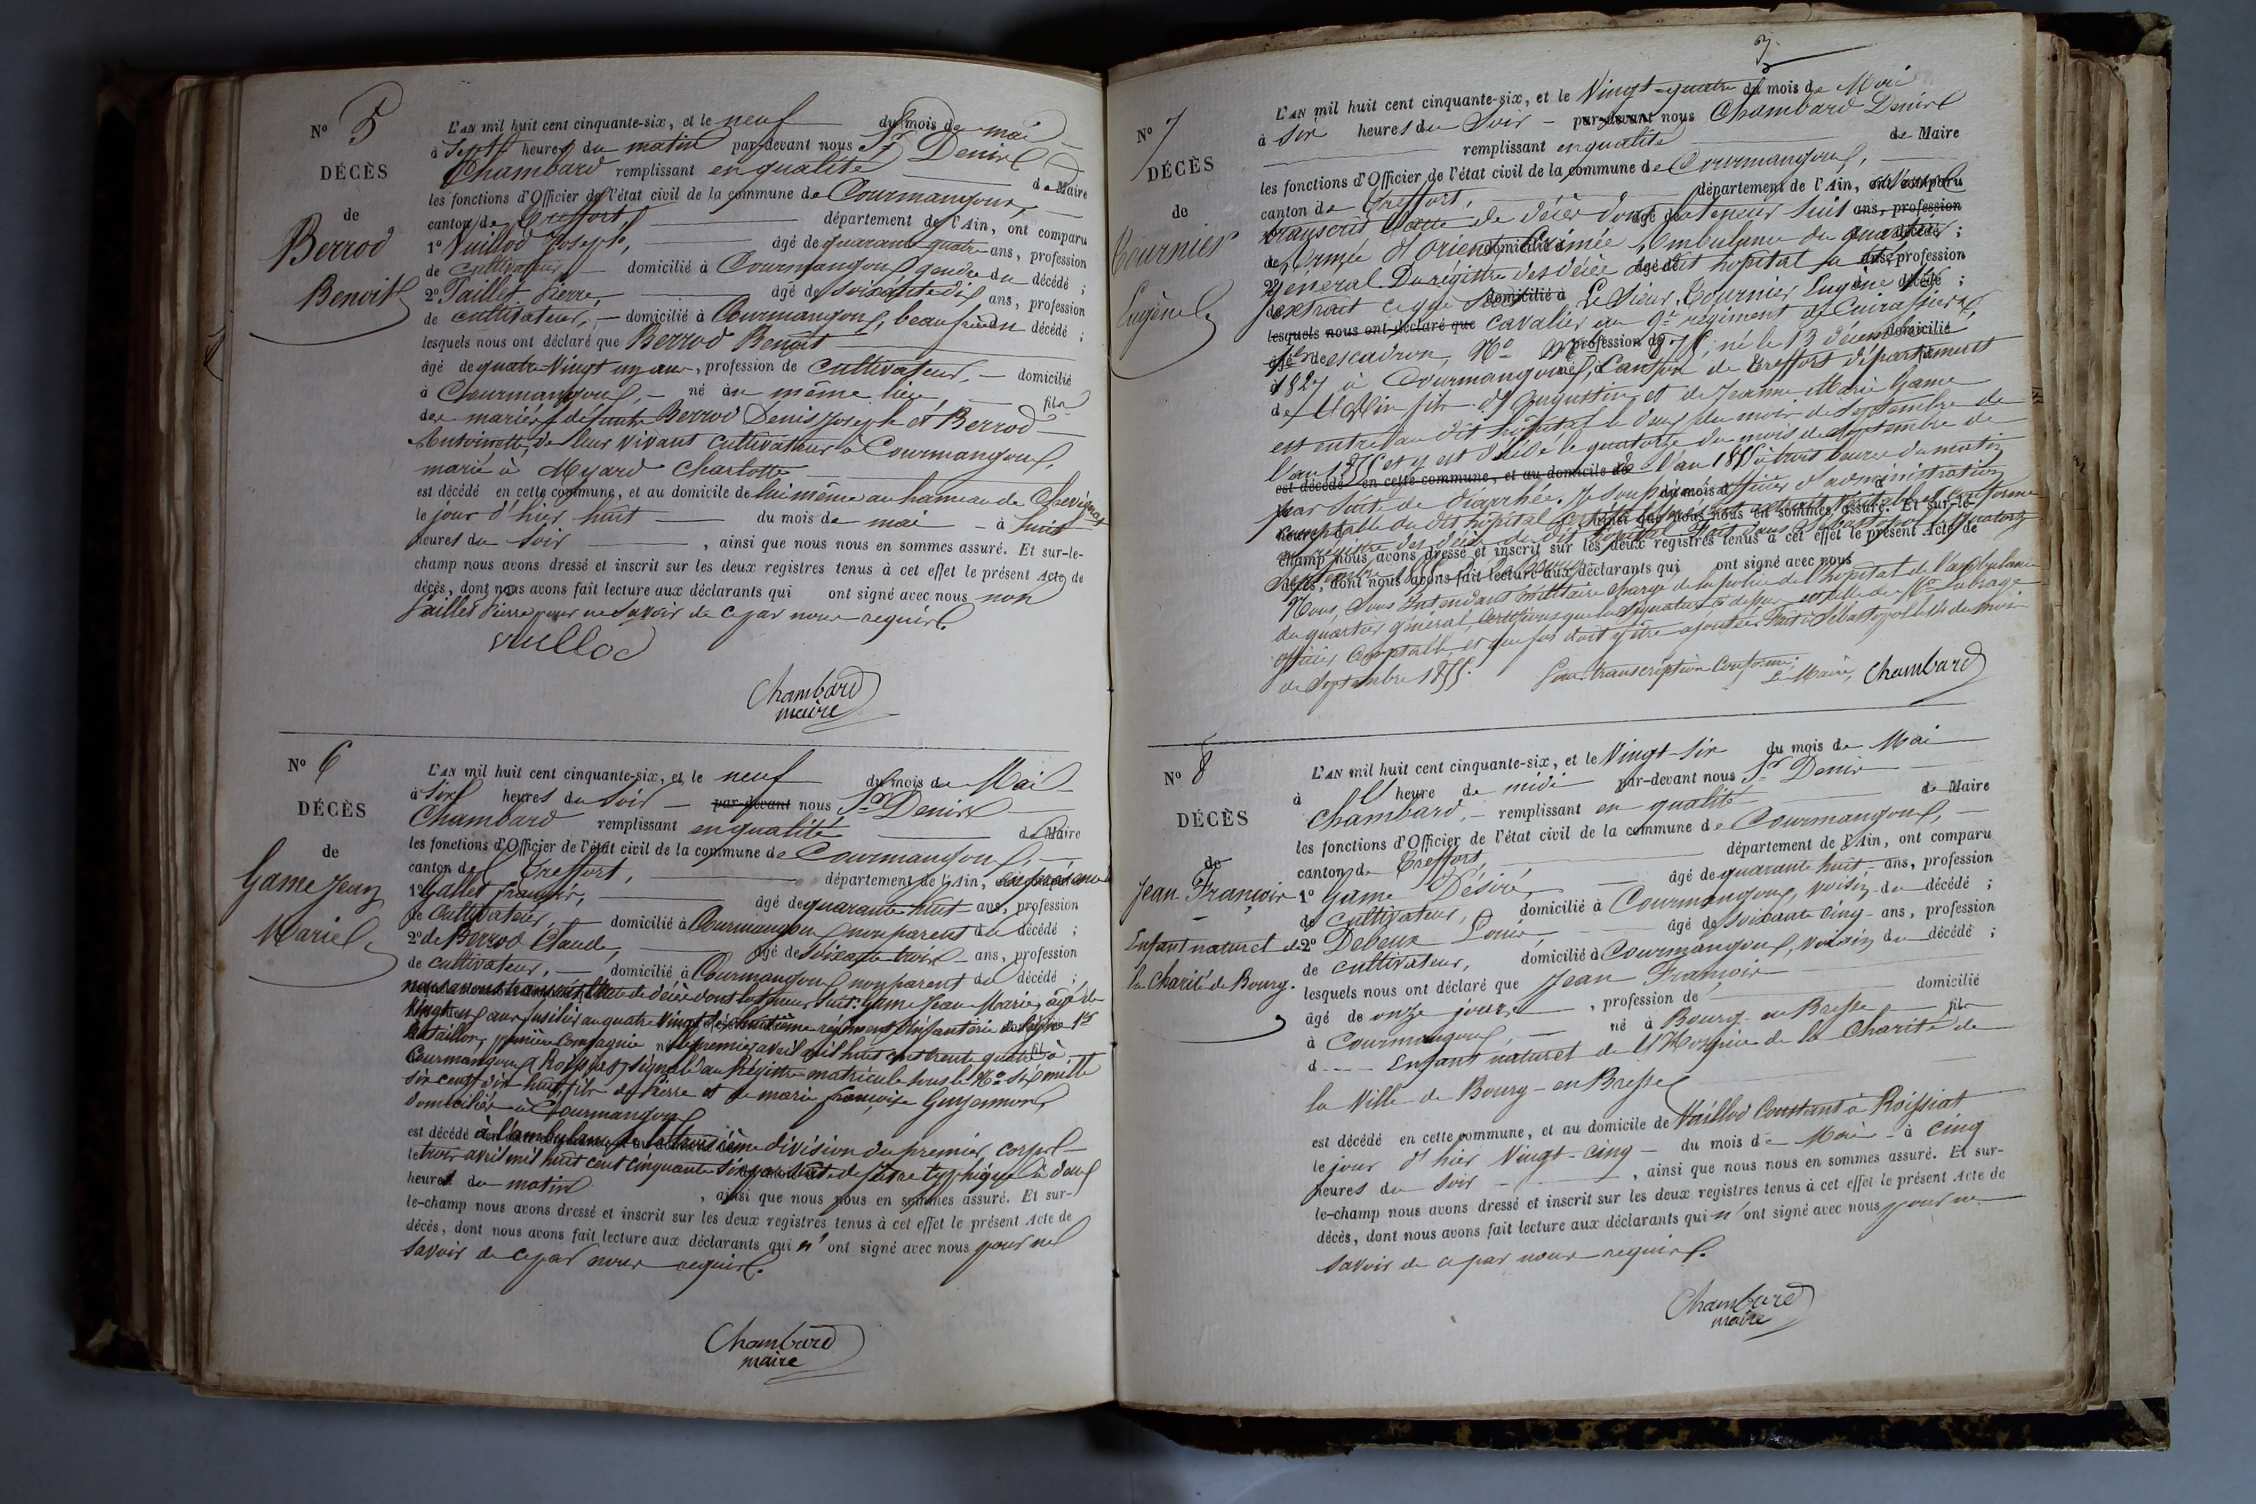 N° 5
DÉCÈS
de
Berrod
Benoit
L'AN mil huit cent cinquante-six, et le neuf du mois de mai
à sept heures du matin par-devant nous Sr Denis
Chambard remplissant en qualité de Maire
les fonctions d'Officier de l'état civil de la commune de Courmangoux,
canton de Treffort, département de l'Ain, ont comparu
1° Vuillod Joseph, âgé de quarante quatre ans, profession
de cultivateur, domicilié à Courmangoux gendre du décédé ;
2° Paillet Pierre, âgé de soixante dix ans, profession
de cultivateur, domicilié à Courmangoux, beau frère du décédé ;
lesquels nous ont déclaré que Berrod Benoit
âgé de quatre-Vingt un ans, profession de cultivateur, domicilié
à Courmangoux, né au même lieu, fils
des mariés défunts Berrod Denis Joseph et Berrod
Antoinette, de leur vivant cultivateurs à Courmangoux,
marié à Myard Charlotte
est décédé en cette commune, et au domicile de lui même au hameau de Chevignat
le jour d'hier huit du mois de mai à huit
heures du soir, ainsi que nous nous en sommes assuré. Et sur-le-
champ nous avons dressé et inscrit sur les deux registres tenus à cet effet le présent Acte de
décès, dont nous avons fait lecture aux déclarants qui ont signé avec nous non
Paillet Pierre pour ne savoir de ce par nous requis.
Vuillod
Chambard
maire
N° 6
DÉCÈS
de
Game Jean
Marie
L'AN mil huit cent cinquante-six, et le neuf du mois de Mai
à six heures du soir par-devant nous Sr Denis
Chambard remplissant en qualité de Maire
les fonctions d'Officier de l'état civil de la commune de Courmangoux,
canton de Treffort, département de l'Ain,
1° Gallet François, âgé de quarante huit ans, profession
de cultivateur, domicilié à Courmangoux non parent du décédé ;
2° de Berrod Claude, âgé de soixante trois ans, profession
de cultivateur, domicilié à Courmangoux non parent du décédé ;
nous avons transcrit l'acte de décès dont la teneur suit : Game Jean Marie, âgé de
Vingt ans fusilier au quatre Vingt régiment d'infanterie de ligne 1er
Bataillon, première compagnie né le premier avril mil huit cent trente quatre à
Courmangoux Roissiat, signalé au Registre matricule sous le N° six mille
six cent dix huit, fils de Pierre et de marie françoise Guyennon
domiciliés à Courmangoux
est décédé à l'ambulance de la troisième division du premier corps
le trois avril mil huit cent cinquante six par suite de fièvre typhique à deux
heures du matin, ainsi que nous nous en sommes assuré. Et sur-
le-champ nous avons dressé et inscrit sur les deux registres tenus à cet effet le présent Acte de
décès, dont nous avons fait lecture aux déclarants qui n'ont signé avec nous pour ne
savoir de ce par nous requis.
Chambard
maire
3
N° 7
DÉCÈS
de
Tournier
Eugène
L'AN mil huit cent cinquante-six, et le Vingt-quatre du mois de Mai
à six heures du soir par-devant nous Chambard Denis
remplissant en qualité de Maire
les fonctions d'Officier de l'état civil de la commune de Courmangoux,
canton de Treffort, département de l'Ain, ont comparu
transcrit l'acte de décès dont la teneur suit
Armée d'Orient Crimée, Ambulance du quartier
général. Du régistre des décès du dit hôpital a été
extrait ce qui suit Le Sieur Tournier Eugène
lesquels nous ont déclaré que cavalier au 9e régiment de Cuirassiers,
escadron, N° né le 13 décembre
1827 à Courmangoux, Canton de Treffort département
de l'Ain fils d'Augustin et de Jeanne Marie Game
est entré au dit hôpital le deux du mois de Septembre de
l'an 1855 et y est décédé le quatorze du mois de Septembre de
est décédé en cette commune, et au domicile de l'an 1855 à trois heures du matin
par suite de diarrhée. Je soussigné officier d'administration
comptable du dit hôpital certifie le présent extrait véritable et conforme
au registre des décès du dit hôpital Fait à Sébastopol le quatorze
Nous Sous Intendant militaire chargé de la police de l'hôpital de l'ambulance
du quartier général, Certifions que la signature ci dessus est celle de Mr Labrage
officier Comptable, et que foi doit y être ajoutée. Fait à Sébastopol du mois
de Septembre 1855.
Pour transcription Conforme :
Le Maire, Chambard
N° 8
DÉCÈS
de
Jean François
Enfant naturel de
la Charité de Bourg.
L'AN mil huit cent cinquante-six, et le Vingt-six du mois de Mai
à l' heure de midi par-devant nous Sr Denis
Chambard, remplissant en qualité de Maire
les fonctions d'Officier de l'état civil de la commune de Courmangoux,
canton de Treffort, département de l'Ain, ont comparu
1° Game Désiré, âgé de quarante huit ans, profession
de cultivateur, domicilié à Courmangoux, voisin du décédé ;
2° Debeux Louis, âgé de soixante cinq ans, profession
de cultivateur, domicilié à Courmangoux, voisin du décédé ;
lesquels nous ont déclaré que Jean François
âgé de onze jours, profession de domicilié
à Courmangoux, né à Bourg en Bresse fils
d Enfant naturel de l'Hospice de la Charité de
la Ville de Bourg-en Bresse
est décédé en cette commune, et au domicile de Vuillod Constant à Roissiat
le jour d'hier Vingt-cinq du mois de Mai à cinq
heures du soir, ainsi que nous nous en sommes assuré. Et sur-
le-champ nous avons dressé et inscrit sur les deux registres tenus à cet effet le présent Acte de
décès, dont nous avons fait lecture aux déclarants qui n'ont signé avec nous pour ne
savoir de ce par nous requis.
Chambard
maire